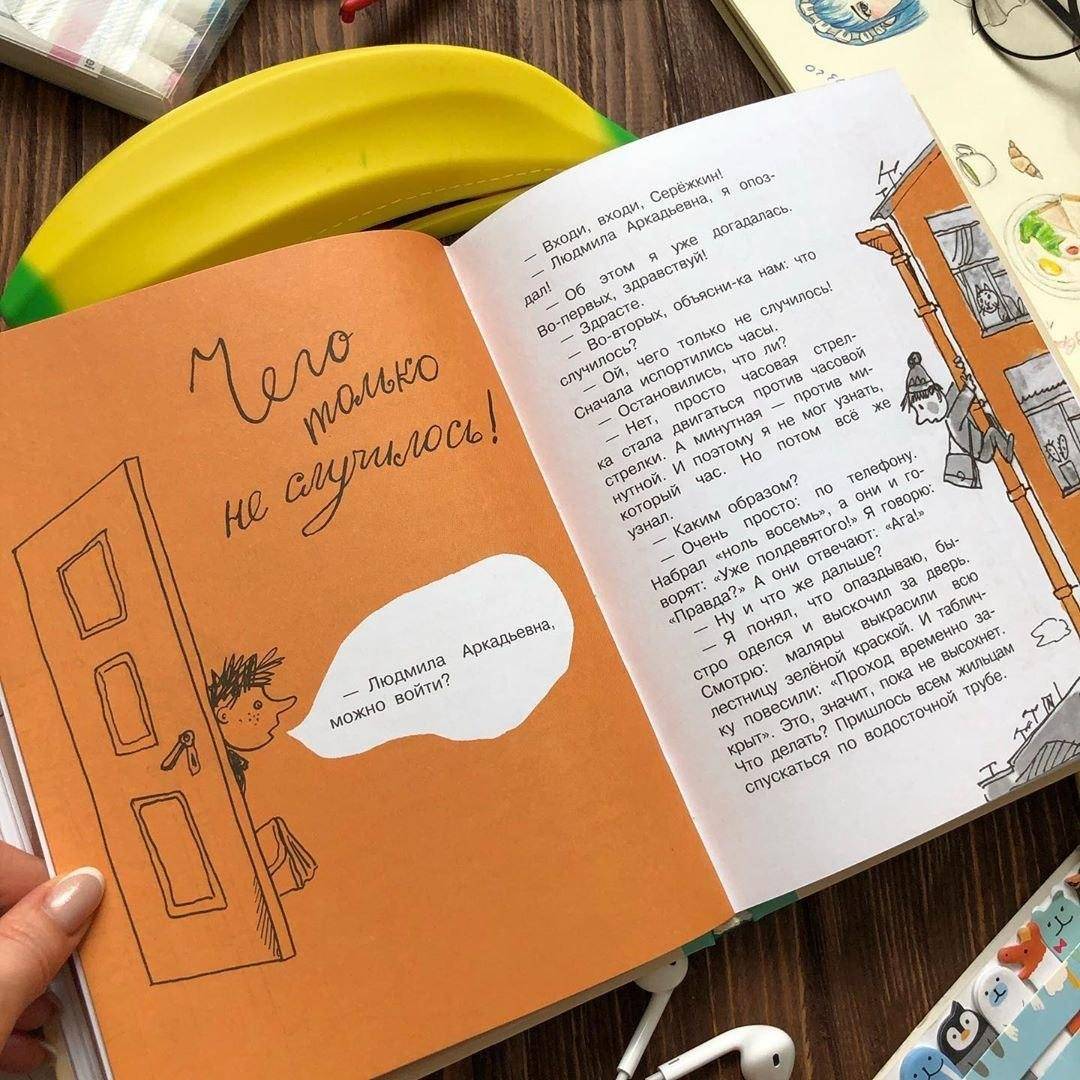 Чего
только
не случилось!
— Людмила Аркадьевна,
можно войти?
— Входи, входи, Серёжкин!
— Людмила Аркадьевна, я опоз-
дал!
— Об этом я уже догадалась.
Во-первых, здравствуй!
— Здрасте.
— Во-вторых, объясни-ка нам: что
случилось?
— Ой, чего только не случилось!
Сначала испортились часы.
— Остановились, что ли?
— Нет, просто часовая стрел-
ка стала двигаться против часовой
стрелки. А минутная — против ми-
нутной. И поэтому я не мог узнать,
который час. Но потом всё же
узнал.
— Каким образом?
— Очень просто: по телефону.
Набрал «ноль восемь», а они и го-
ворят: «Уже полдевятого!» Я говорю:
«Правда?» А они отвечают: «Ага!»
— Ну и что же дальше?
— Я понял, что опаздываю, бы-
стро оделся и выскочил за дверь.
Смотрю: маляры выкрасили всю
лестницу зелёной краской. И таблич-
ку повесили: «Проход временно за-
крыт». Это, значит, пока не высохнет.
Что делать? Пришлось всем жильцам
спускаться по водосточной трубе.